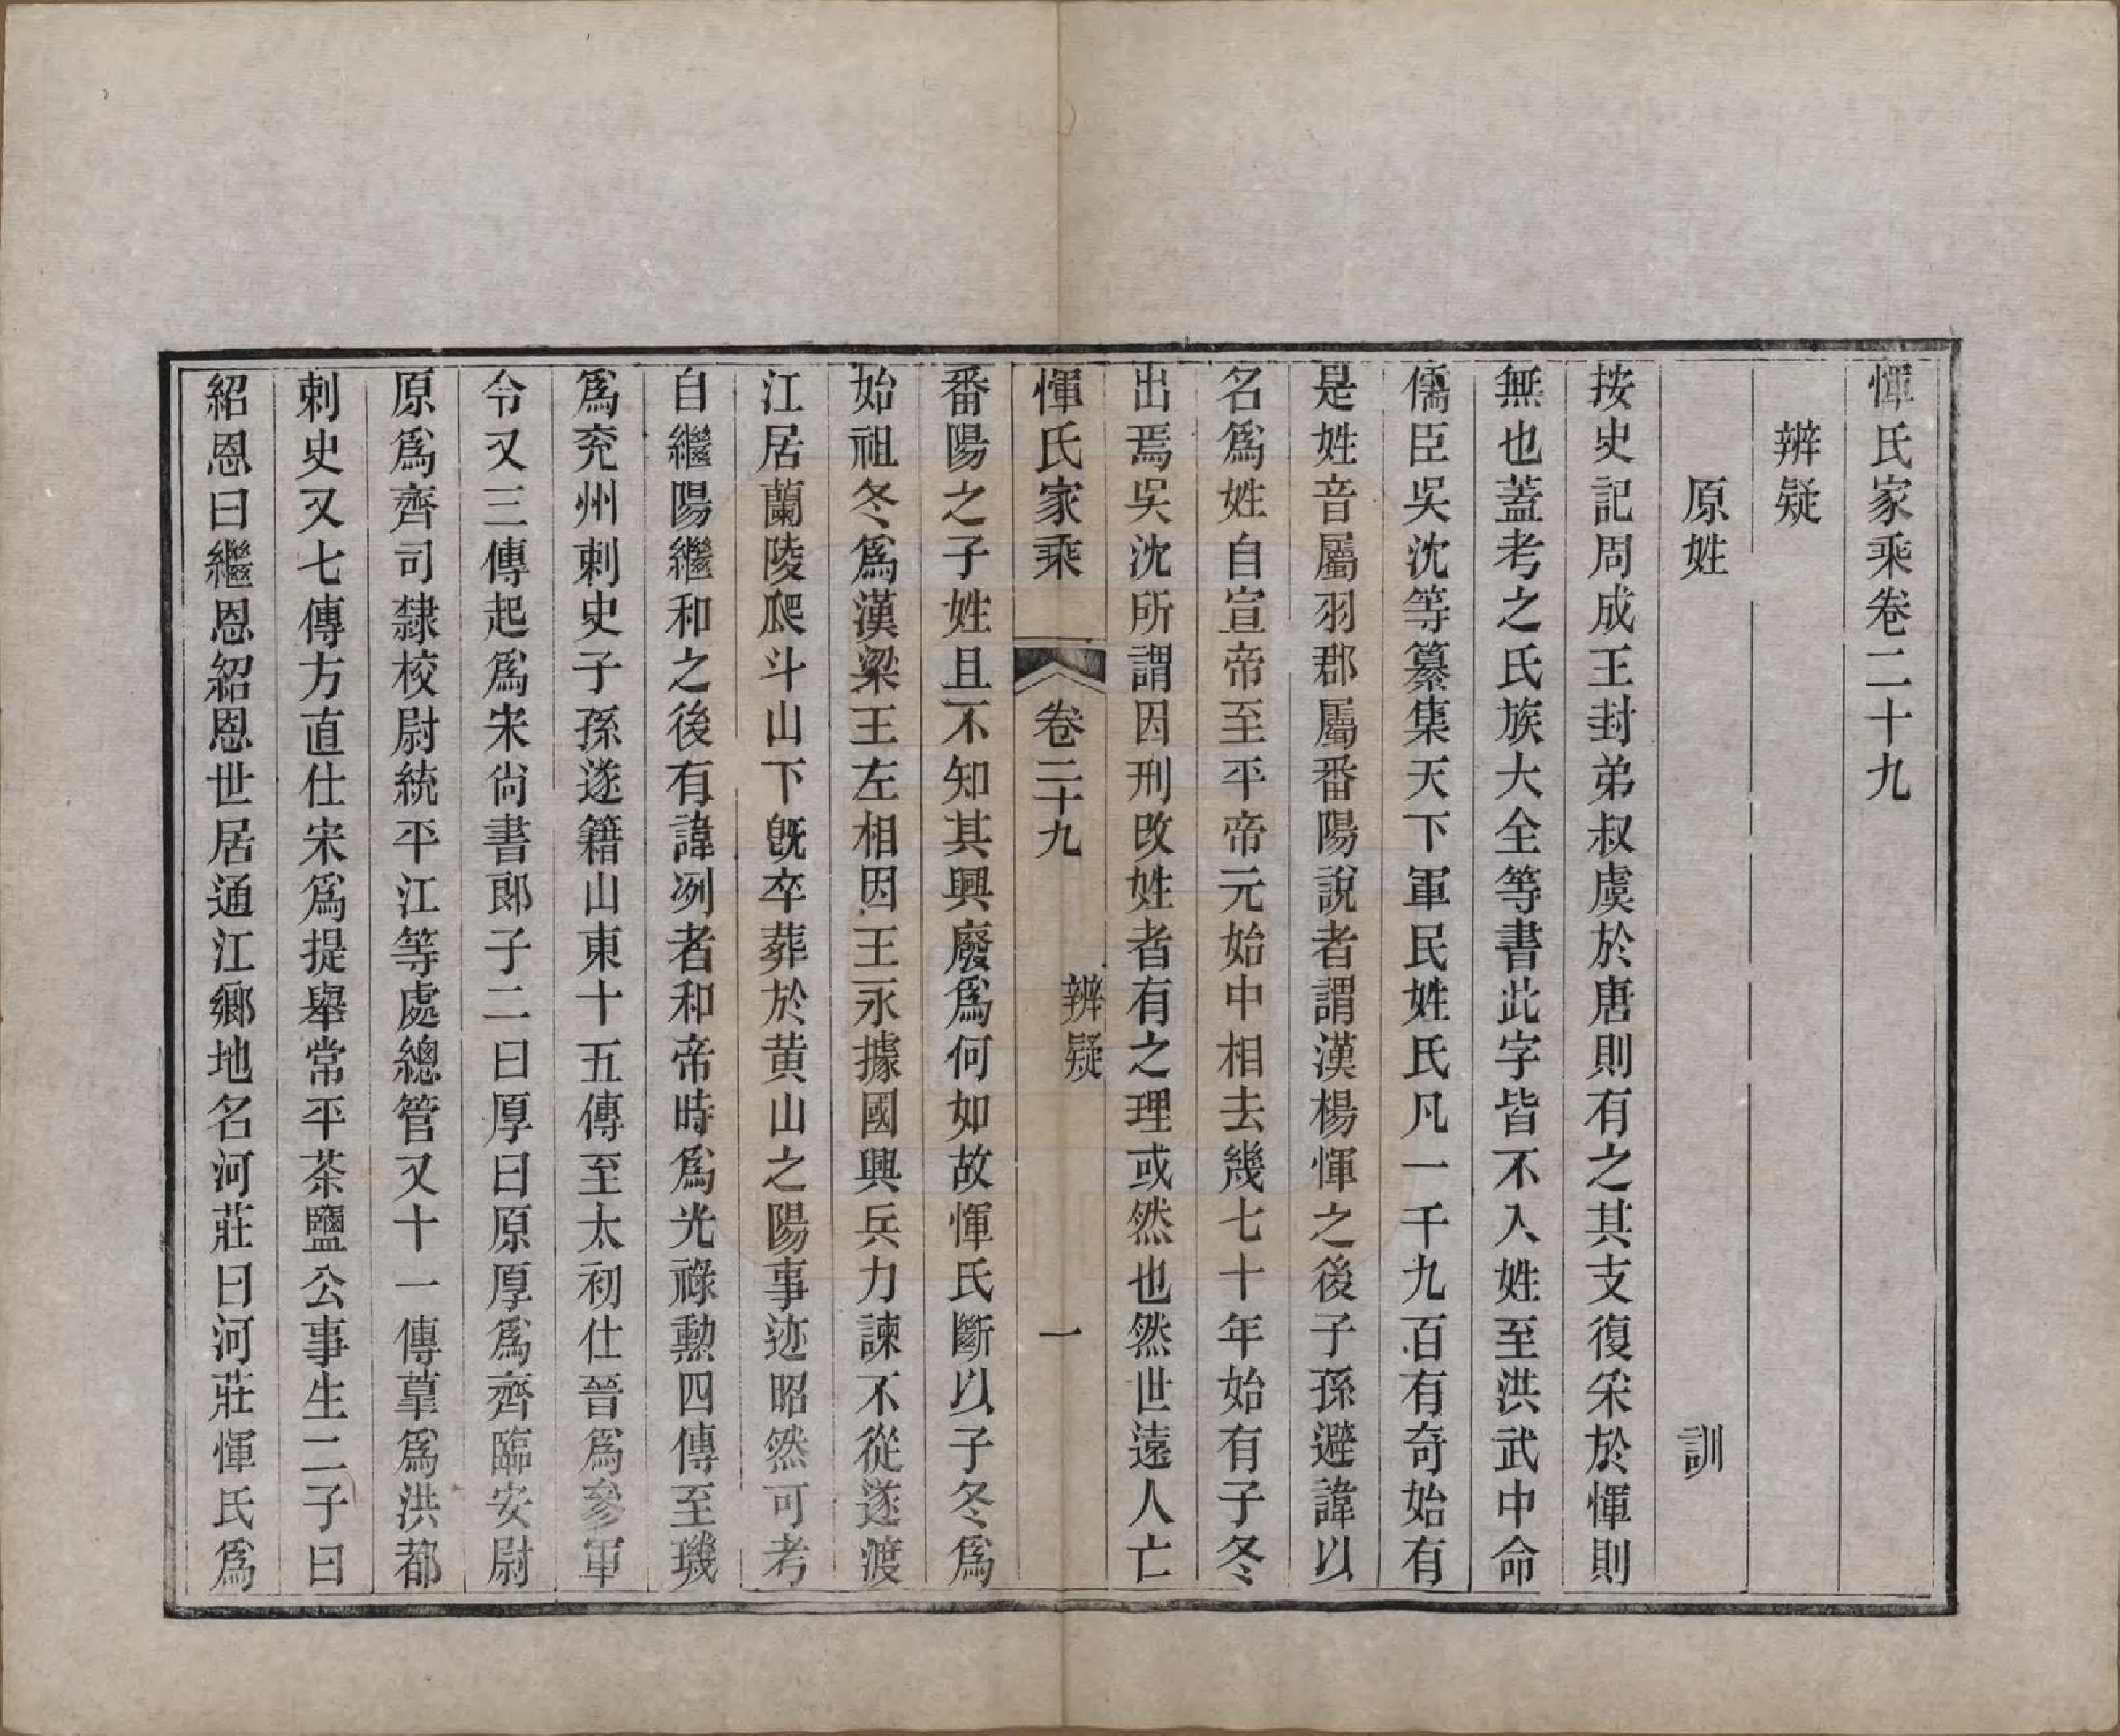 惲氏家乘卷二十九
辨疑
原姓　訓
按史記周成王封弟叔虞於唐則有之其支復寀於惲則
無也蓋考之氏族大全等書此字皆不入姓至洪武中命
儒臣吳沈等纂集天下軍民姓氏凡一千九百有奇始有
是姓音屬羽郡屬番陽說者謂漢楊惲之後子孫避諱以
名爲姓自宣帝至平帝元始中相去幾七十年始有子冬
出焉吳沈所謂因刑改姓者有之理或然也然世遠人亡
惲氏家乘　卷二十九　辨疑　一
番陽之子姓且不知其興廢爲何如故惲氏斷以子冬爲
始祖冬爲漢梁王左相因王永據國興兵力諫不從遂渡
江居蘭陵爬斗山下旣卒葬於黄山之陽事迹昭然可考
自繼陽繼和之後有諱冽者和帝時爲光祿勲四傳至璣
爲兖州刺史子孫遂籍山東十五傳至太初仕晉爲參軍
令又三傳起爲宋尙書郎子二曰厚曰原厚爲齊臨安尉
原爲齊司隸校尉統平江等處總管又十一傳葟爲洪都
刺史又七傳方直仕宋爲提舉常平茶鹽公事生二子曰
紹恩曰繼恩紹恩世居通江鄉地名河莊曰河莊惲氏爲